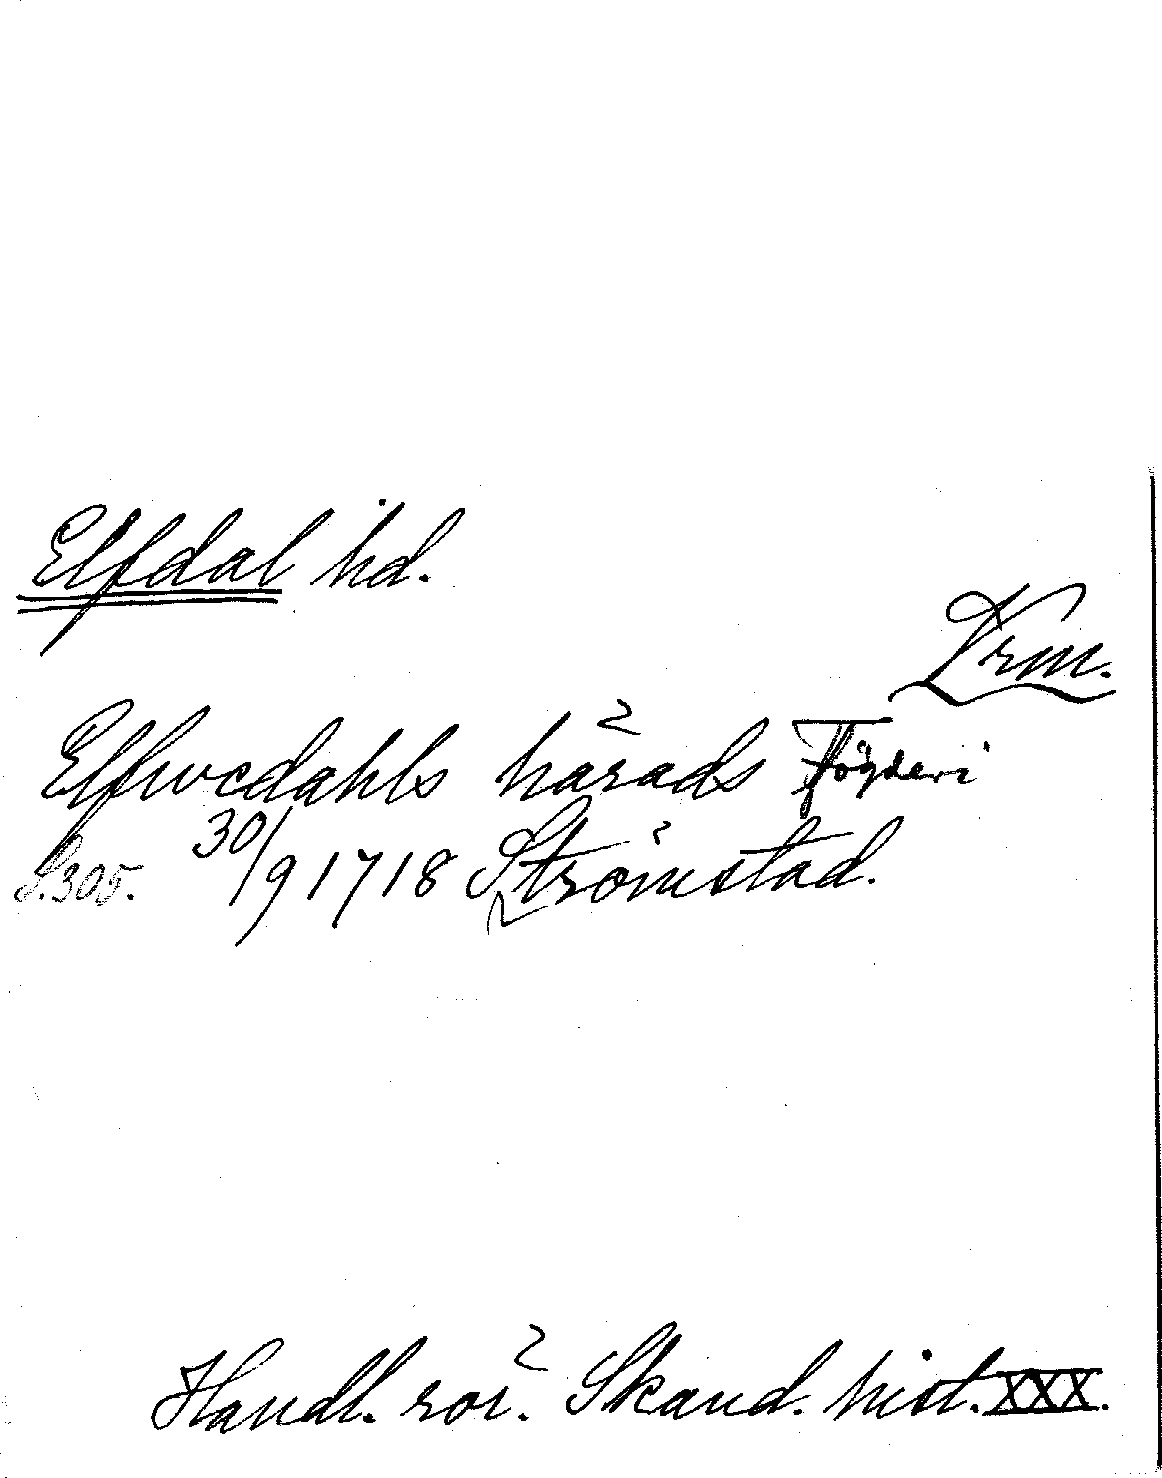 Elfdal hd.
Vrm.
Elfwedahls härads Fögderi
S. 305. 30/9 1718 Strömstad.
Handl. rör. Skand. hist. XXX.